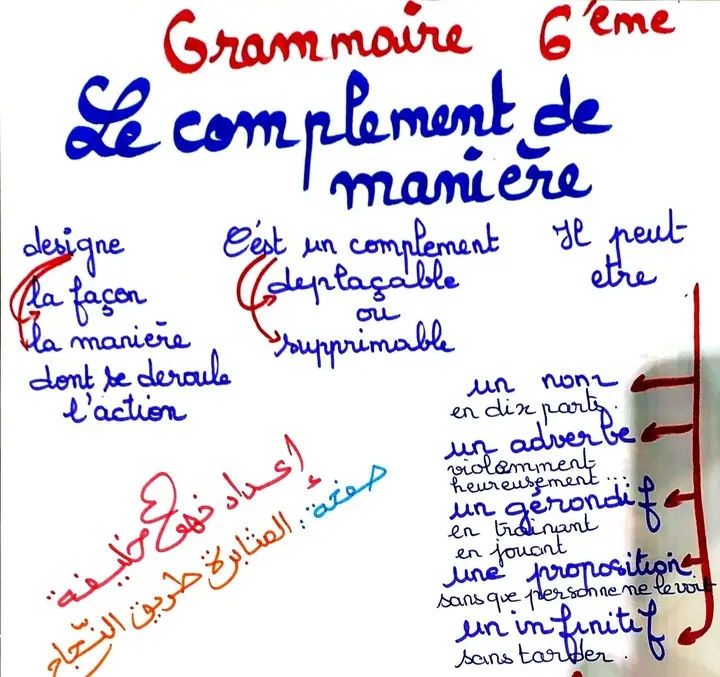 Grammaire 6ème
Le complement de
manière
designe
la façon
la manière
dont se deroule
l'action
C'est un complement
deplaçable
ou
supprimable
Il peut
etre
un nom
en dix parts.
un adverbe
violamment
heureusement...
un gérondif
en trainant
en jouant
une proposition
sans que personne ne le voit
un infinitif
sans tarder.
إعداد نهى خليفة
صفحة: المثابرة طريق النّجاح